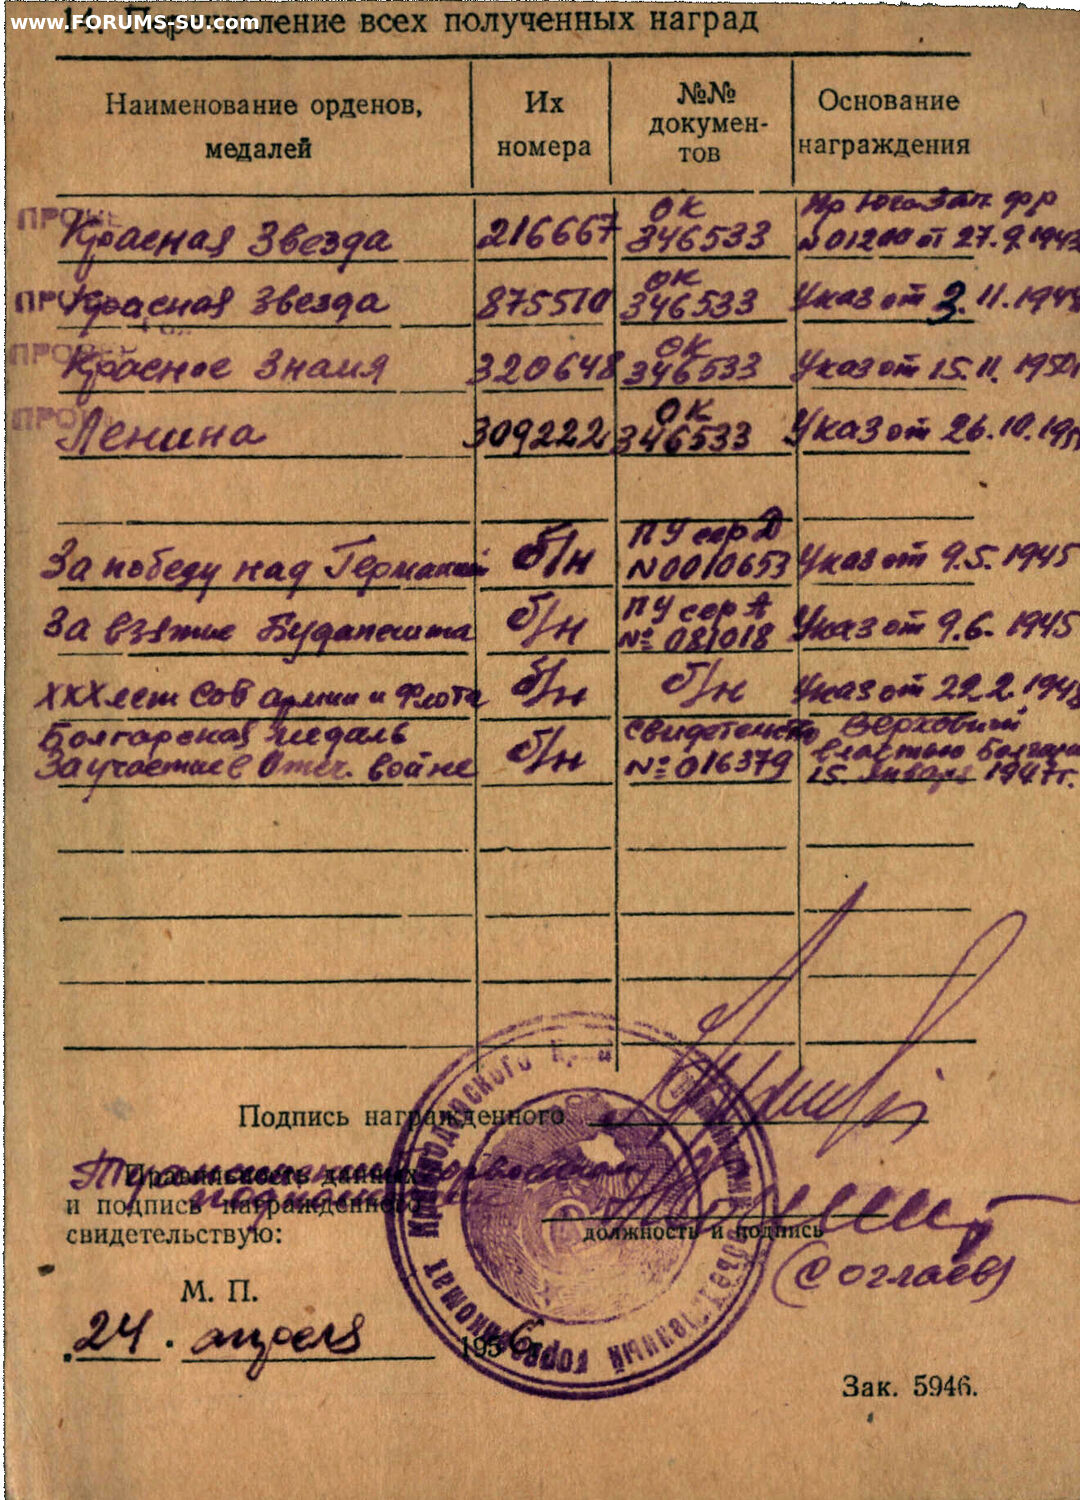 www.FORUMS-SU.com
14. Перечисление всех полученных наград
Наименование орденов, медалей
Их номера
№№ документов
Основание награждения
Красная Звезда 216667 ОК 346533 Пр Юго Зап. фр N01200 от 27.9.1943
Красная Звезда 875510 ОК 346533 Указ от 3.11.194
Красное Знамя 320648 ОК 346533 Указ от 15.11.1950
Ленина 309222 ОК 346533 Указ от 26.10.195
За победу над Германией б/н ПУ сер Д N0010653 Указ от 9.5.1945
За взятие Будапешта б/н ПУ сер А № 081018 Указ от 9.6.1945
XXX лет Сов армии и Флота б/н б/н Указ от 22.2.1948
Болгарская медаль За участие в Отеч. войне б/н Свидетельство № 016379 Верховный властью Болгари 15 января 1947г.
Подпись награжденного
Правильность данных
и подпись награжденного
свидетельствую:
должность и подпись
(Соглаев)
М. П.
24 апреля 1956
Зак. 5946.